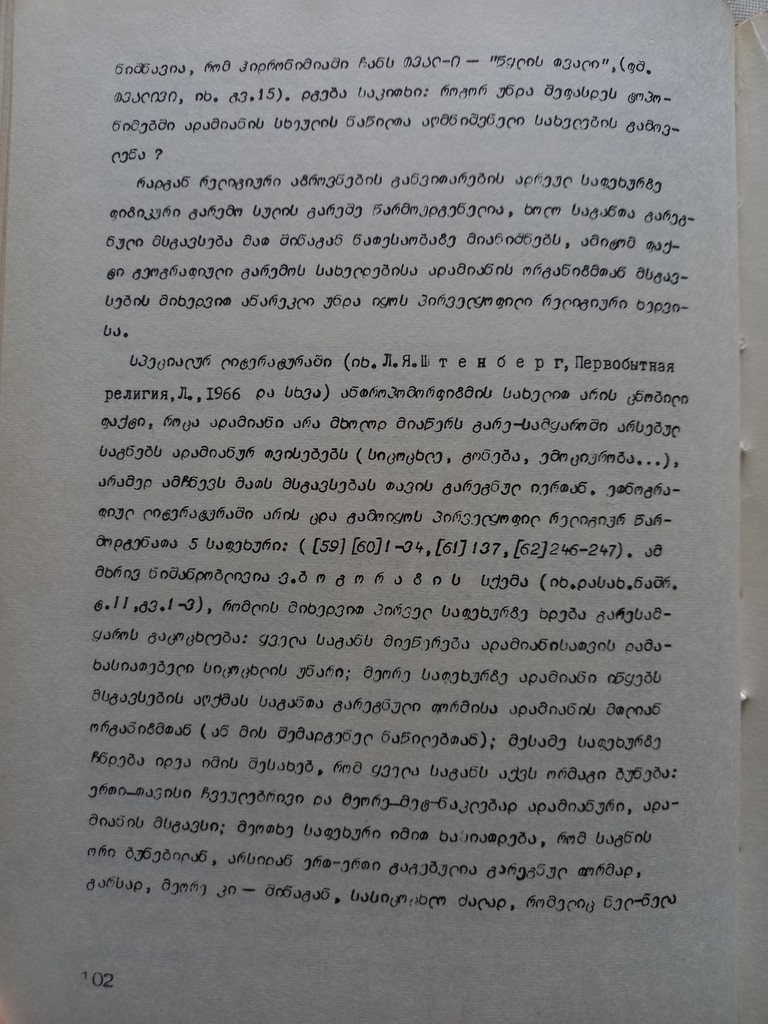 ნიშნავია, რომ ჰიდრონიმიაში ჩანს თვალ-ი — "წყლის თვალი",(შდ.
თვალივი, იხ. გვ.15). დგება საკითხი: როგორ უნდა შეფასდეს ტოპო-
ნიმებში ადამიანის სხეულის ნაწილთა აღმნიშვნელი სახელების გამოვ-
ლენა ?
რადგან რელიგიური აზროვნების განვითარების ადრეულ საფეხურზე
ფიზიკური გარემო სულის გარეშე წარმოუდგენელია, ხოლო საგანთა გარეგ-
ნული მსგავსება მათ შინაგან ნათესაობაზე მიანიშნებს, ამიტომ ფაქ-
ტი გეოგრაფიული გარემოს სახელდებისა ადამიანის ორგანიზმთან მსგავ-
სების მიხედვით ანარეკლი უნდა იყოს პირველყოფილი რელიგიური ხედვი-
სა.
სპეციალურ ლიტერატურაში (იხ.Л.Я.Ш т е н б е р г, Первобытная
религия,Л.,1966 და სხვა) ანთროპომორფიზმის სახელით არის ცნობილი
ფაქტი, როცა ადამიანი არა მხოლოდ მიაწერს გარე-სამყაროში არსებულ
საგნებს ადამიანურ თვისებებს (სიცოცხლე, გონება, ემოციურობა...),
არამედ ამჩნევს მათს მსგავსებას თავის გარეგნულ იერთან. ეთნოგრა-
ფიულ ლიტერატურაში არის ცდა გამოიყოს პირველყოფილ რელიგიურ წარ-
მოდგენათა 5 საფეხური: ([59][60]1-34,[61]137,[62]246-247). ამ
მხრივ ნიშანდობლივია ვ.ბ ო გ ო რ ა ზ ი ს სქემა (იხ.დასახ.ნაშრ.
ტ.II,გვ.1-3), რომლის მიხედვით პირველ საფეხურზე ხდება გარესამ-
ყაროს გაცოცხლება: ყველა საგანს მიეწერება ადამიანისათვის დამა-
ხასიათებელი სიცოცხლის უნარი; მეორე საფეხურზე ადამიანი იწყებს
მსგავსების აღქმას საგანთა გარეგნული ფორმისა ადამიანის მთლიან
ორგანიზმთან (ან მის შემადგენელ ნაწილებთან); მესამე საფეხურზე
ჩნდება იდეა იმის შესახებ, რომ ყველა საგანს აქვს ორმაგი ბუნება:
ერთი-თავისი ჩვეულებრივი და მეორე-მეტ-ნაკლებად ადამიანური, ადა-
მიანის მსგავსი; მეოთხე საფეხური იმით ხასიათდება, რომ საგნის
ორი ბუნებიდან, არსიდან ერთ-ერთი გაგებულია გარეგნულ ფორმად,
გარსად, მეორე კი — შინაგან, სასიცოცხლო ძალად, რომელიც ნელ-ნელა
102